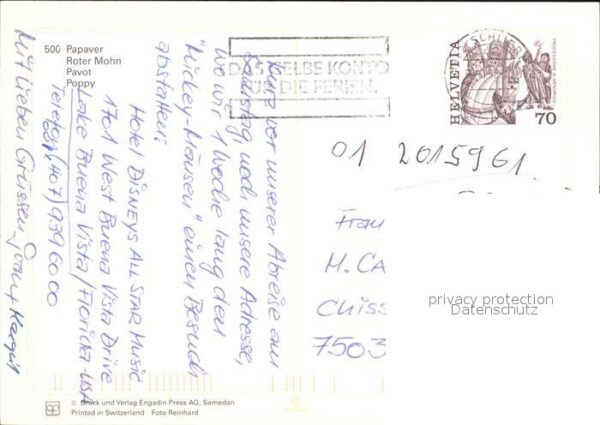 500 Papaver
Roter Mohn
Pavot
Poppy
DAS GELBE KONTO
FÜR DIE FERIEN.
HELVETIA
70
01 2015961.
Kurz vor unserer Abreise am
Samstag, noch unsere Adresse,
wo wir 1 Woche lang den
"Mickey-Mäusen" einen Besuch
abstatten:
Hotel DISNEYS ALL STAR MUSIC
1701 West Buena Vista Drive
Lake Buena Vista / Florida - USA
Telefon (407) 939 6000
Mit lieben Grüssen
Margrit
Frau
M. CA
Chiss
7503
privacy protection
Datenschutz
© Druck und Verlag Engadin Press AG, Samedan
Printed in Switzerland Foto Reinhard